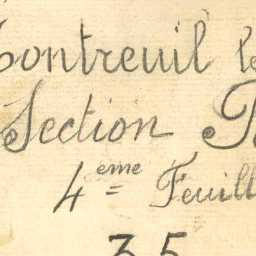 Montreuil le
Section B
4eme Feuill
35